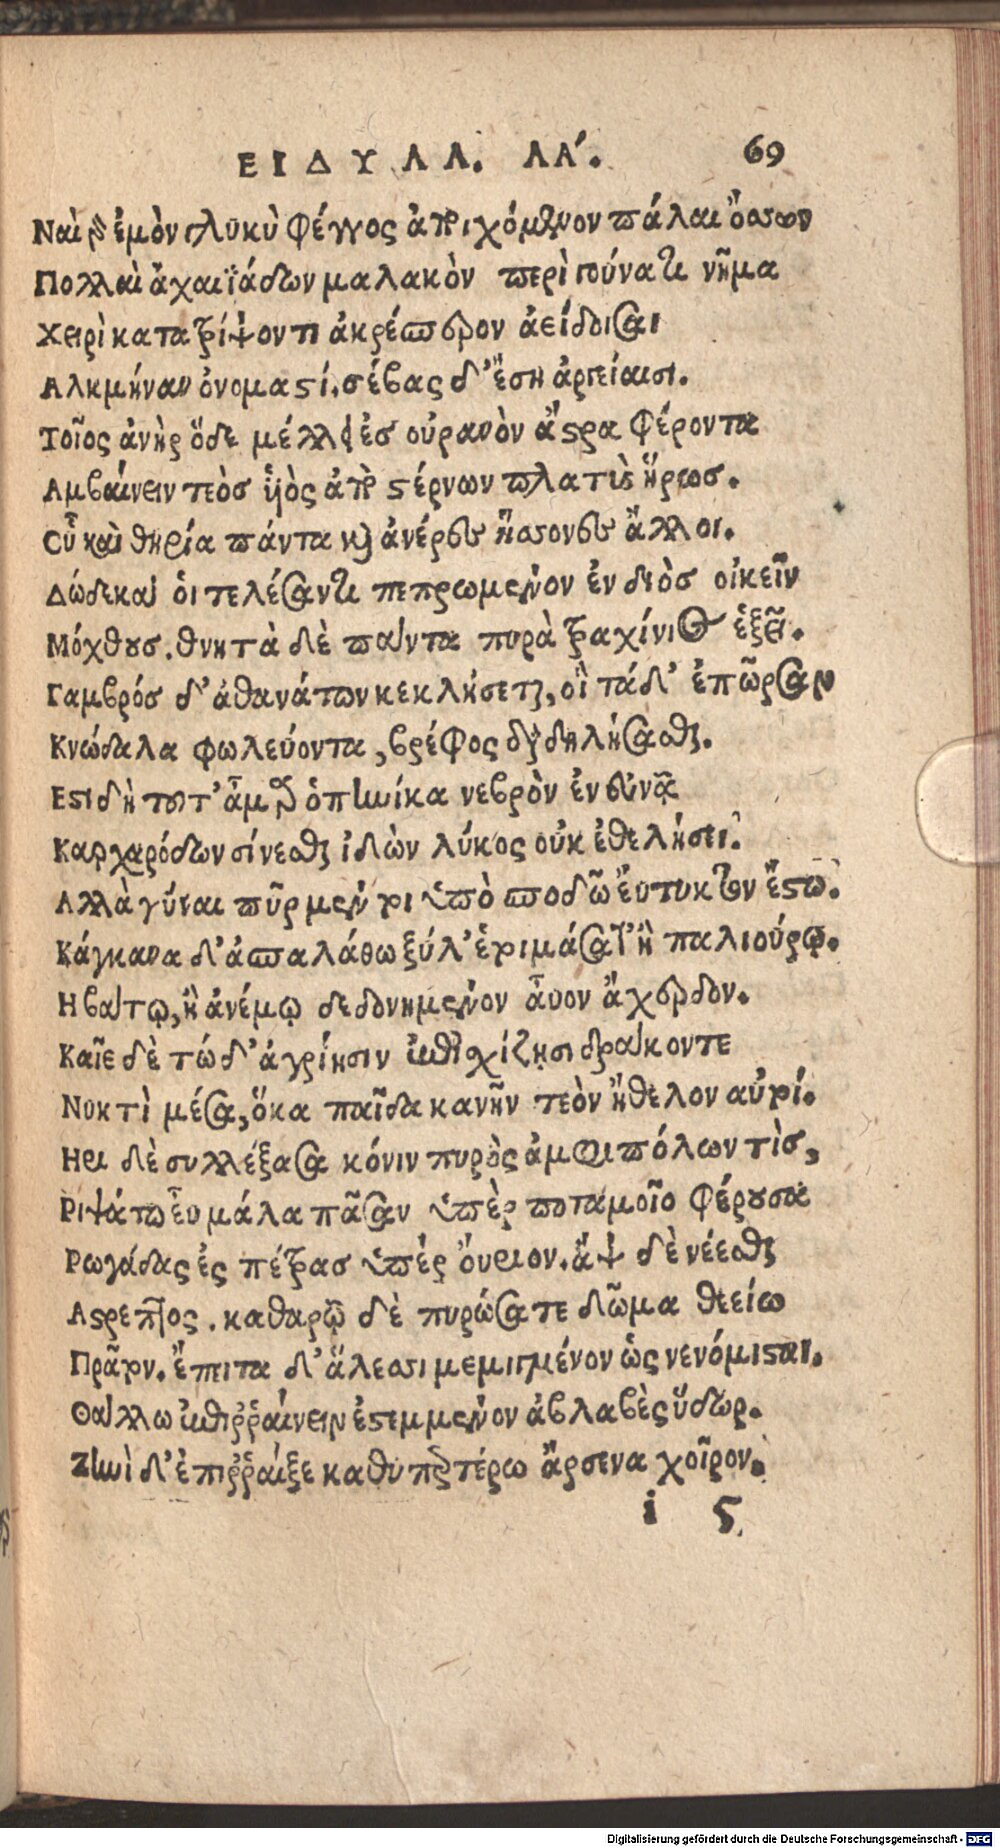 ΕΙΔΥΛΛ. ΛΑ΄. 69
Ναὶ γὸ ἐμὸν γλυκὺ φέγγος ἀποιχόμενον πάλαι ὄσσων
Πολλαὶ ἀχαιϊάδων μαλακὸν περὶ γούνατι νῆμα
Χειρὶ κατατρίψοντι ἀκρέσπερον ἀείδοισαι
Αλκμήναν ὀνομαστί. σέβας δ' ἔσῃ ἀργείαισι.
Τοῖος ἀνὴρ ὅδε μέλλει ἐσ οὐρανὸν ἄστρα φέροντα
Αμβαίνειν τεὸσ ὑιὸς ἀπὸ στέρνων πλατὺς ἥρωσ.
Οὗ καὶ θηρία πάντα καὶ ἀνέρες ἥσσονες ἄλλοι.
Δώδεκά οἱ τελέσαντι πεπρωμένον ἐν διὸσ οἰκεῖν
Μόχθουσ. θνητὰ δὲ πάντα πυρὰ τραχίνιος ἑξεῖ.
Γαμβρόσ δ' ἀθανάτων κεκλήσεται, οἳ τάδ' ἐπῶρσαν
Κνώδαλα φωλεύοντα, βρέφος διαδηλήσασθαι.
Εσται δὴ τοῦτ' ἆμαρ ὁπηνίκα νεβρὸν ἐν εὐνᾷ
Καρχαρόδων σίνεσθαι ἰδὼν λύκος οὐκ ἐθελήσει.
Αλλὰ γύναι πῦρ μέν τοι ὑπὸ σποδῶ ἔυτυκτον ἔστω.
Κάγκανα δ' ἀσπαλάθω ξύλ' ἑτοιμάσατ' ἢ παλιούρῳ.
Η βάτῳ, ἢ ἀνέμῳ δεδονημένον ἆυον ἄχερδον.
Καῖε δὲ τώδ' ἀγρίησιν ἐπὶ σχίζῃσι δράκοντε
Νυκτὶ μέσα, ὅκα παῖδα κανῆν τεὸν ἤθελον αὐτοί.
Ηρι δὲ συλλέξασα κόνιν πυρὸς ἀμφιπόλων τὶσ,
Ριψάτω εὖ μάλα πᾶσαν ὑπὲρ ποταμοῖο φέρουσα
Ρωγάδας ἐς πέτρασ ὑπέρ ὄυριον. ἂψ δὲ νέεσθαι
Αστρεπτος. καθαρῷ δὲ πυρώσατε δῶμα θεείω
Πρᾶτον. ἔπιτα δ' ἅλεσσι μεμιγμένον ὡς νενόμισται.
Θάλλω ἐπιῤῥαίνειν ἐστεμμένον ἀβλαβὲς ὕδωρ.
Ζηνὶ δ' ἐπιῤῥαίξε καθυπερτέρω ἄρσενα χοῖρον.
i 5